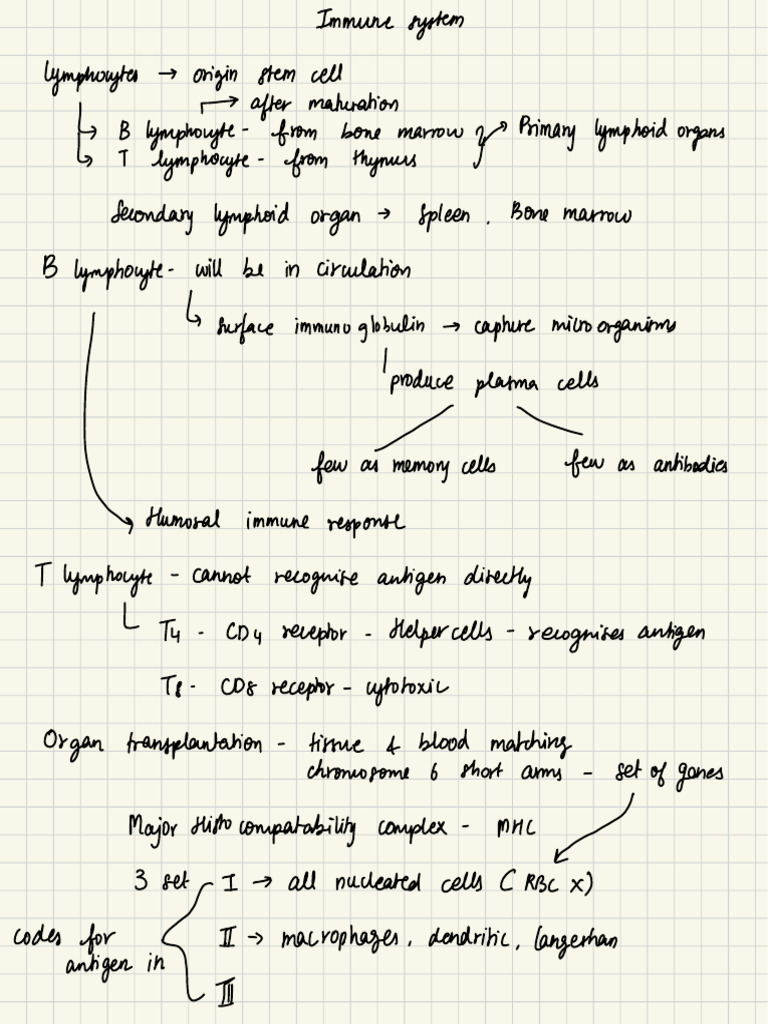 Immune system
lymphocytes → origin stem cell
→ after maturation
→ B lymphocyte - from bone marrow → Primary lymphoid organs
→ T lymphocyte - from thymus
Secondary lymphoid organ → spleen, Bone marrow
B lymphocyte - will be in circulation
↳ surface immunoglobulin → capture microorganisms
produce plasma cells
few as memory cells few as antibodies
→ Humoral immune response
T lymphocyte - cannot recognise antigen directly
T4 - CD4 receptor - Helper cells - recognises antigen
T8 - CD8 receptor - cytotoxic
Organ transplantation - tissue & blood matching
chromosome 6 short arms - set of genes
Major Histocompatability complex - MHC
3 set I → all nucleated cells (RBC x)
codes for II → macrophages, dendritic, langerhan
antigen in
III